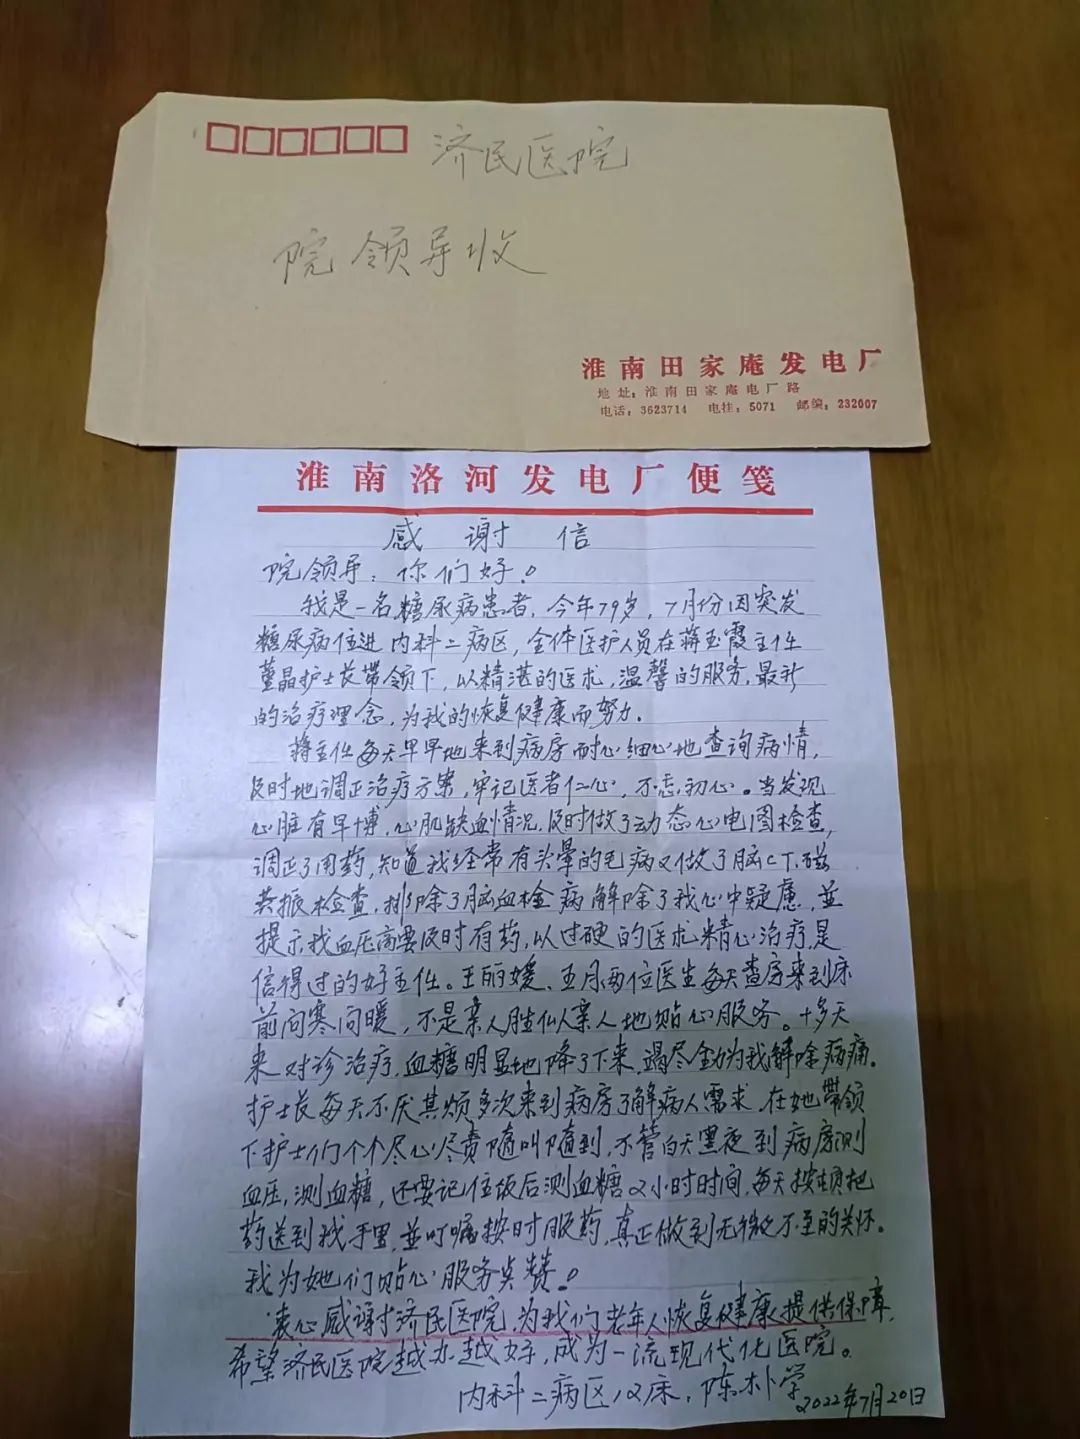 济民医院
院领导收
淮南田家庵发电厂
地址：淮南田家庵电厂路
电话：3623714 电挂：5071 邮编：232007
淮南洛河发电厂便笺
感谢信
院领导：你们好！
我是一名糖尿病患者，今年79岁，7月份因突发
糖尿病住进内科二病区，全体医护人员在蒋玉霞主任
董晶护士长带领下，以精湛的医术，温馨的服务，最新
的治疗理念，为我的恢复健康而努力。
蒋主任每天早早地来到病房耐心细心地查询病情，
及时地调正治疗方案，牢记医者仁心，不忘初心。当发现
心脏有早博，心肌缺血情况，及时做了动态心电图检查，
调正了用药，知道我经常有头晕的毛病又做了脑CT、磁
共振检查，排除了脑血栓病解除了我心中疑虑，並
提示我血压高要及时有药，以过硬的医术精心治疗，是
信得过的好主任。王丽媛、王月两位医生每天查房来到床
前问寒问暖，不是亲人胜似亲人地贴心服务。十多天
来对诊治疗，血糖明显地降了下来，竭尽全力为我解除病痛。
护士长每天不厌其烦多次来到病房了解病人需求，在她带领
下护士们个个尽心尽责随叫随到，不管白天黑夜到病房测
血压，测血糖，还要记住饭后测血糖2小时时间，每天按顿把
药送到我手里，並叮嘱按时服药，真正做到无微不至的关怀。
我为她们贴心服务点赞！
衷心感谢济民医院，为我们老年人恢复健康提供保障，
希望济民医院越办越好，成为一流现代化医院。
内科二病区12床，陈朴学
2022年7月20日